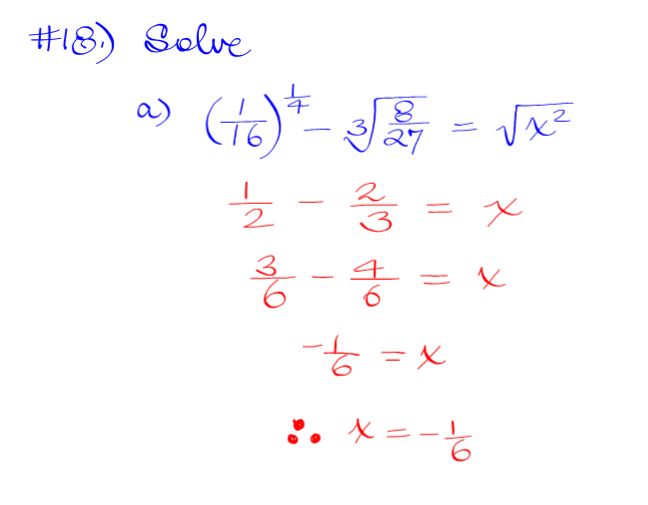 #18.) Solve
a) (1/16)^(1/4) - ∛(8/27) = √(x²)
1/2 - 2/3 = x
3/6 - 4/6 = x
-1/6 = x
∴ x = -1/6